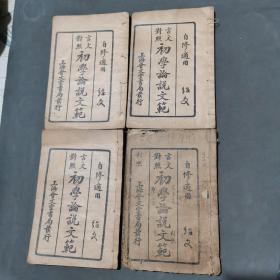 自修適用
言文對照
初學論說文範
紹文
上海會文堂書局發行
自修適用
言文對照
初學論說文範
紹文
上海會文堂書局發行
自修適用
言文對照
初學論說文範
紹文
上海會文堂書局發行
自修適用
言文對照
初學論說文範
紹文